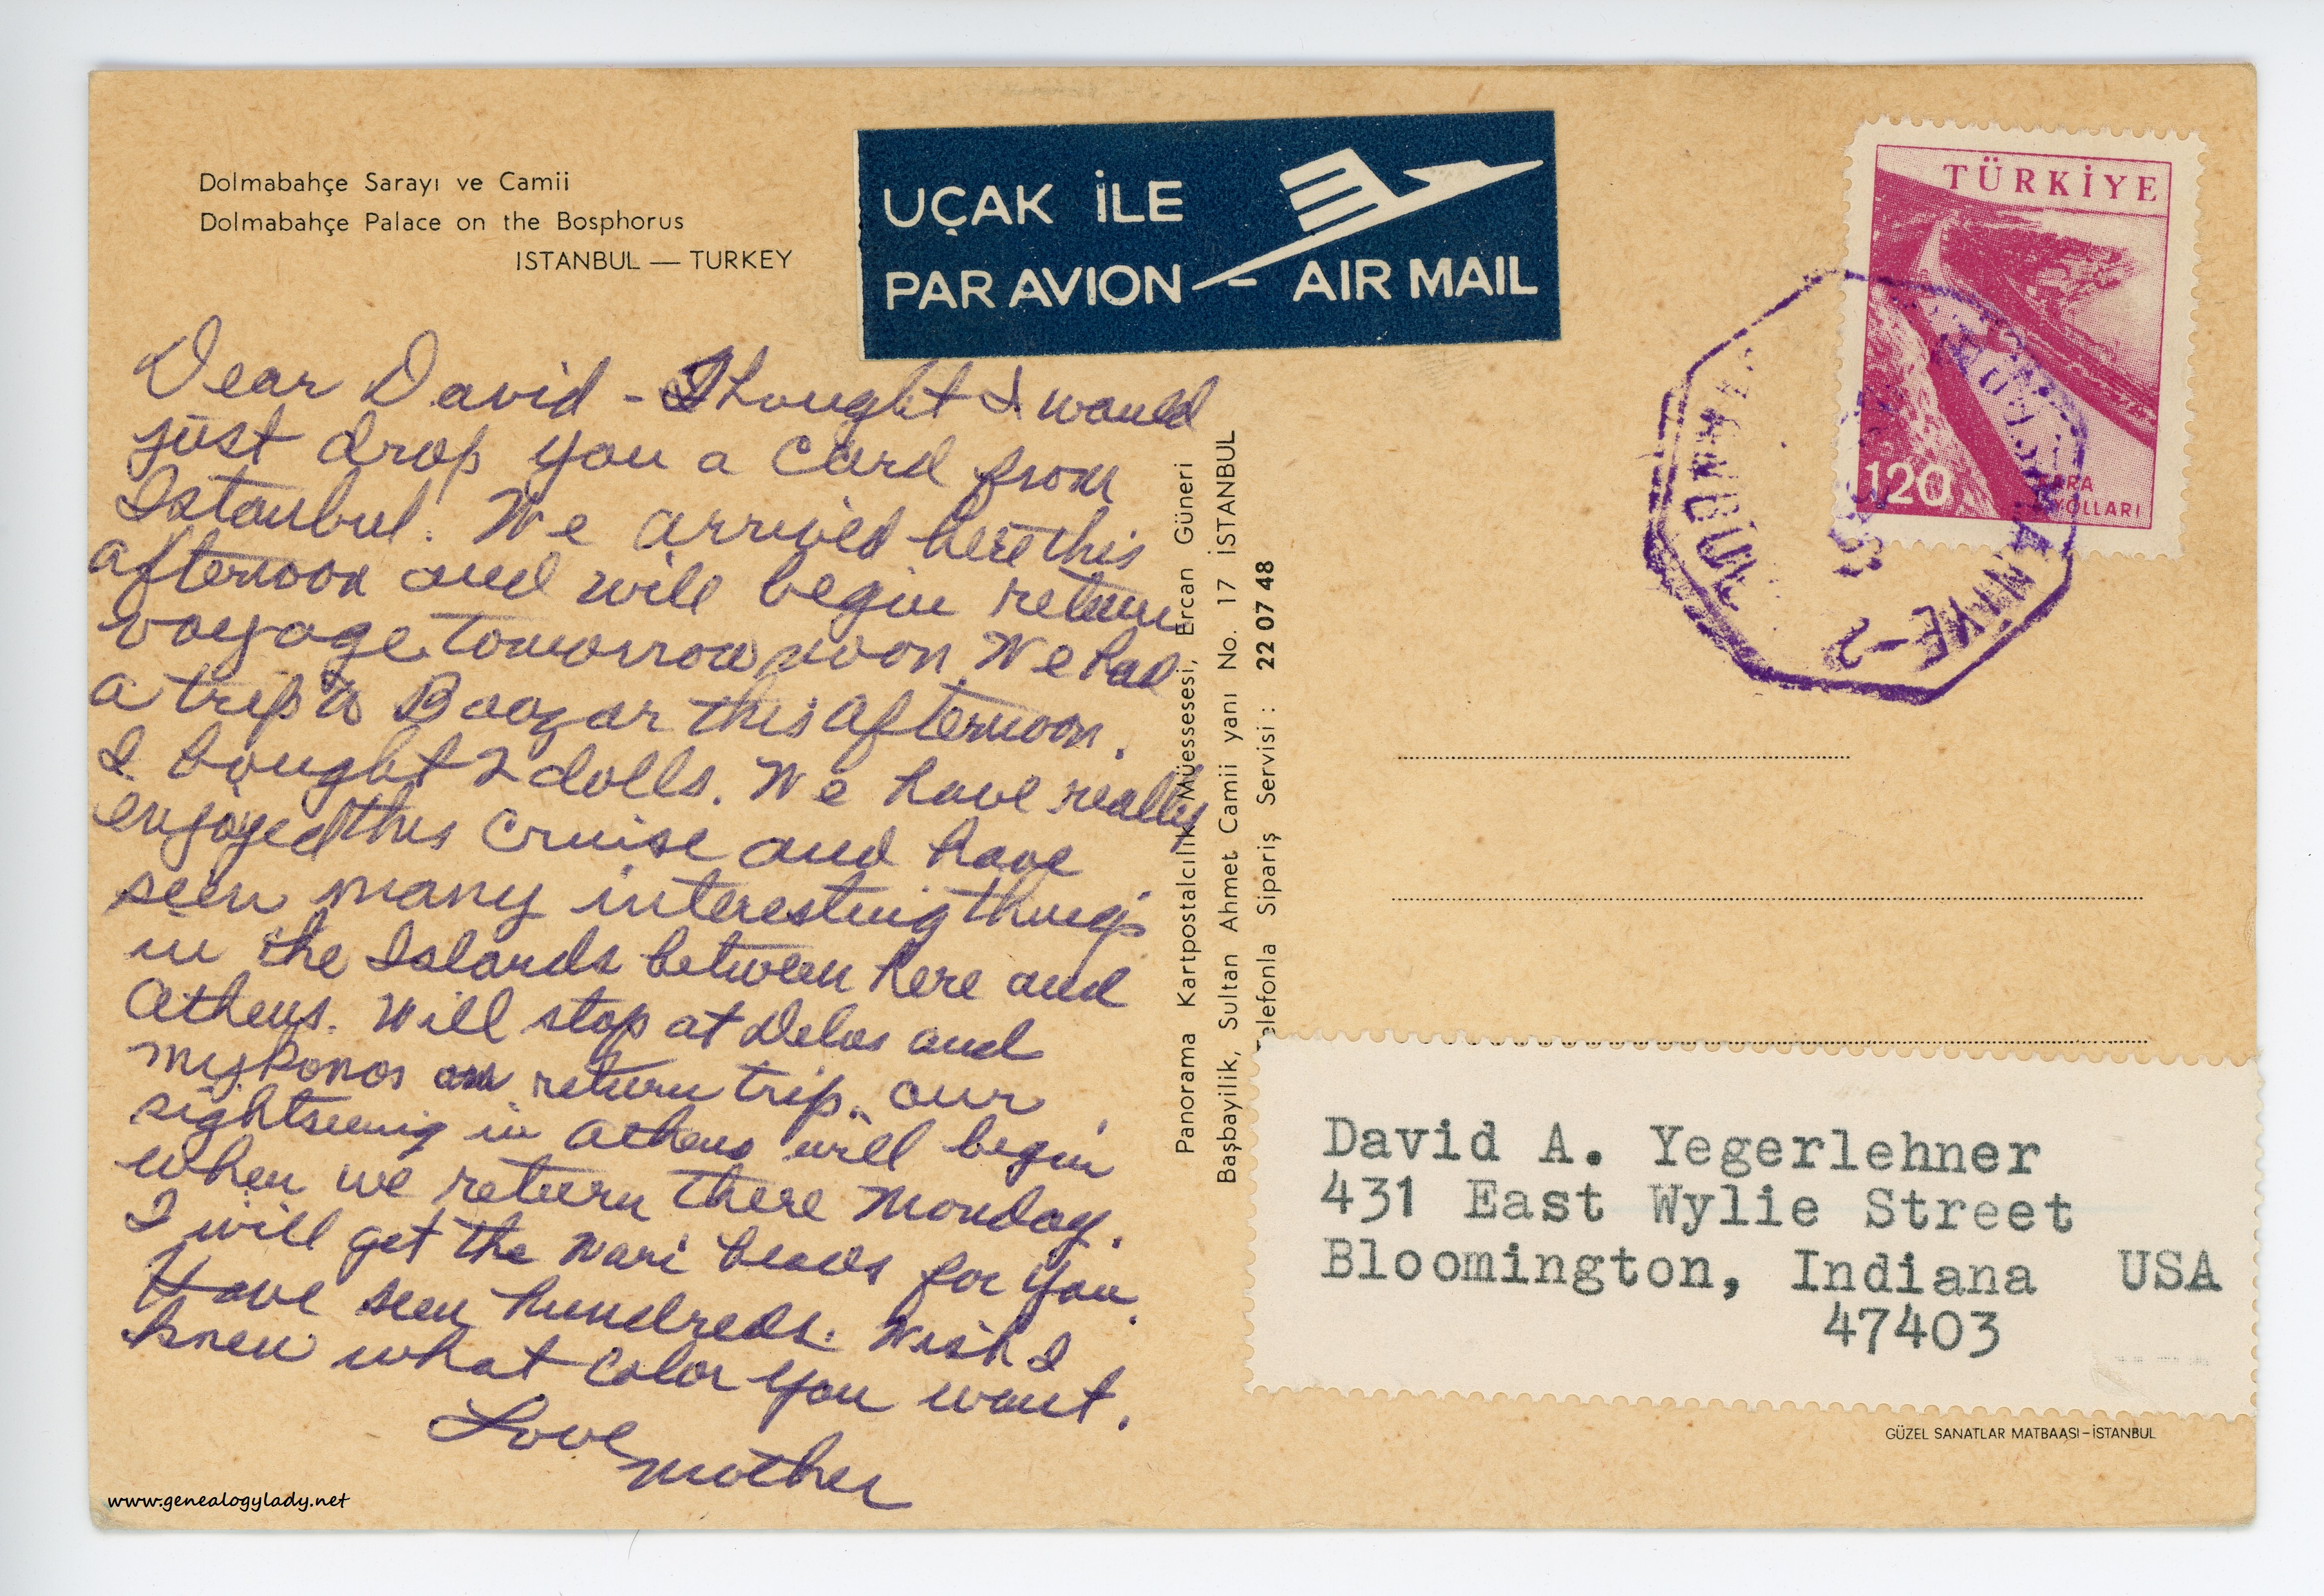 Dolmabahçe Sarayı ve Camii
Dolmabahçe Palace on the Bosphorus
ISTANBUL — TURKEY
UÇAK İLE
PAR AVION – AIR MAIL
TÜRKİYE
120
Dear David - Thought I would
just drop you a card from
Istanbul. We arrived here this
afternoon and will begin return
voyage tomorrow noon. We had
a trip to Baazar this afternoon.
I bought 2 dolls. We have really
enjoyed this cruise and have
seen many interesting things
in the Islands between here and
Athens. Will stop at Delos and
Mykonos on return trip. Our
sightseeing in Athens will begin
when we return there Monday.
I will get the Wari beads for you.
Have seen hundreds. Wish I
knew what color you want.
Love
Mother
Panorama Kartpostalcılık Müessesesi, Ercan Güneri
Başbayilik, Sultan Ahmet Camii yanı No. 17 İSTANBUL
Telefonla Sipariş Servisi : 22 07 48
David A. Yegerlehner
431 East Wylie Street
Bloomington, Indiana USA
47403
GÜZEL SANATLAR MATBAASI-İSTANBUL
www.genealogylady.net